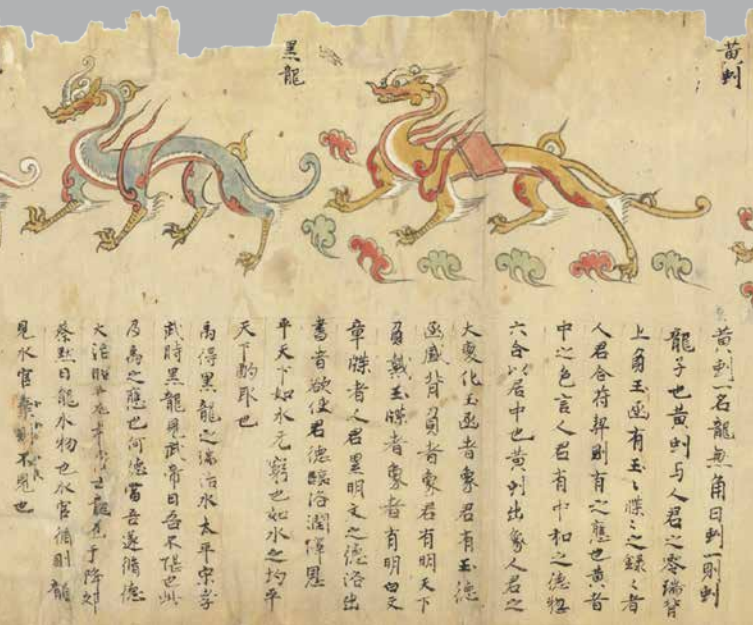 黄虬
黄虬一名龍無角曰虬一則虬
龍子也黄虬与人君之零瑞背
上負玉函有玉〻牒〻之録〻者
人君合符契則有之應也黄者
中之色言人君有中和之德惣
六合以居中也黄虬出象人君之
大變化玉函者象君有玉德
函盛背負者象君有明天下
負戴玉牒者象者有明白文
章牒者人君異明文之德洛出
書者欲使君德醲洛潤澤恩
平天下如水无窮也如水之均平
天下酌取也
黑龍
禹得黑龍之瑞治水太平宋孝
武時黑龍見武帝曰吾不堪也此
及禹之應也何德當吾遂脩德
大治龍見于降郊
蔡默曰龍水物也水官脩則龍
見水官棄則不見也